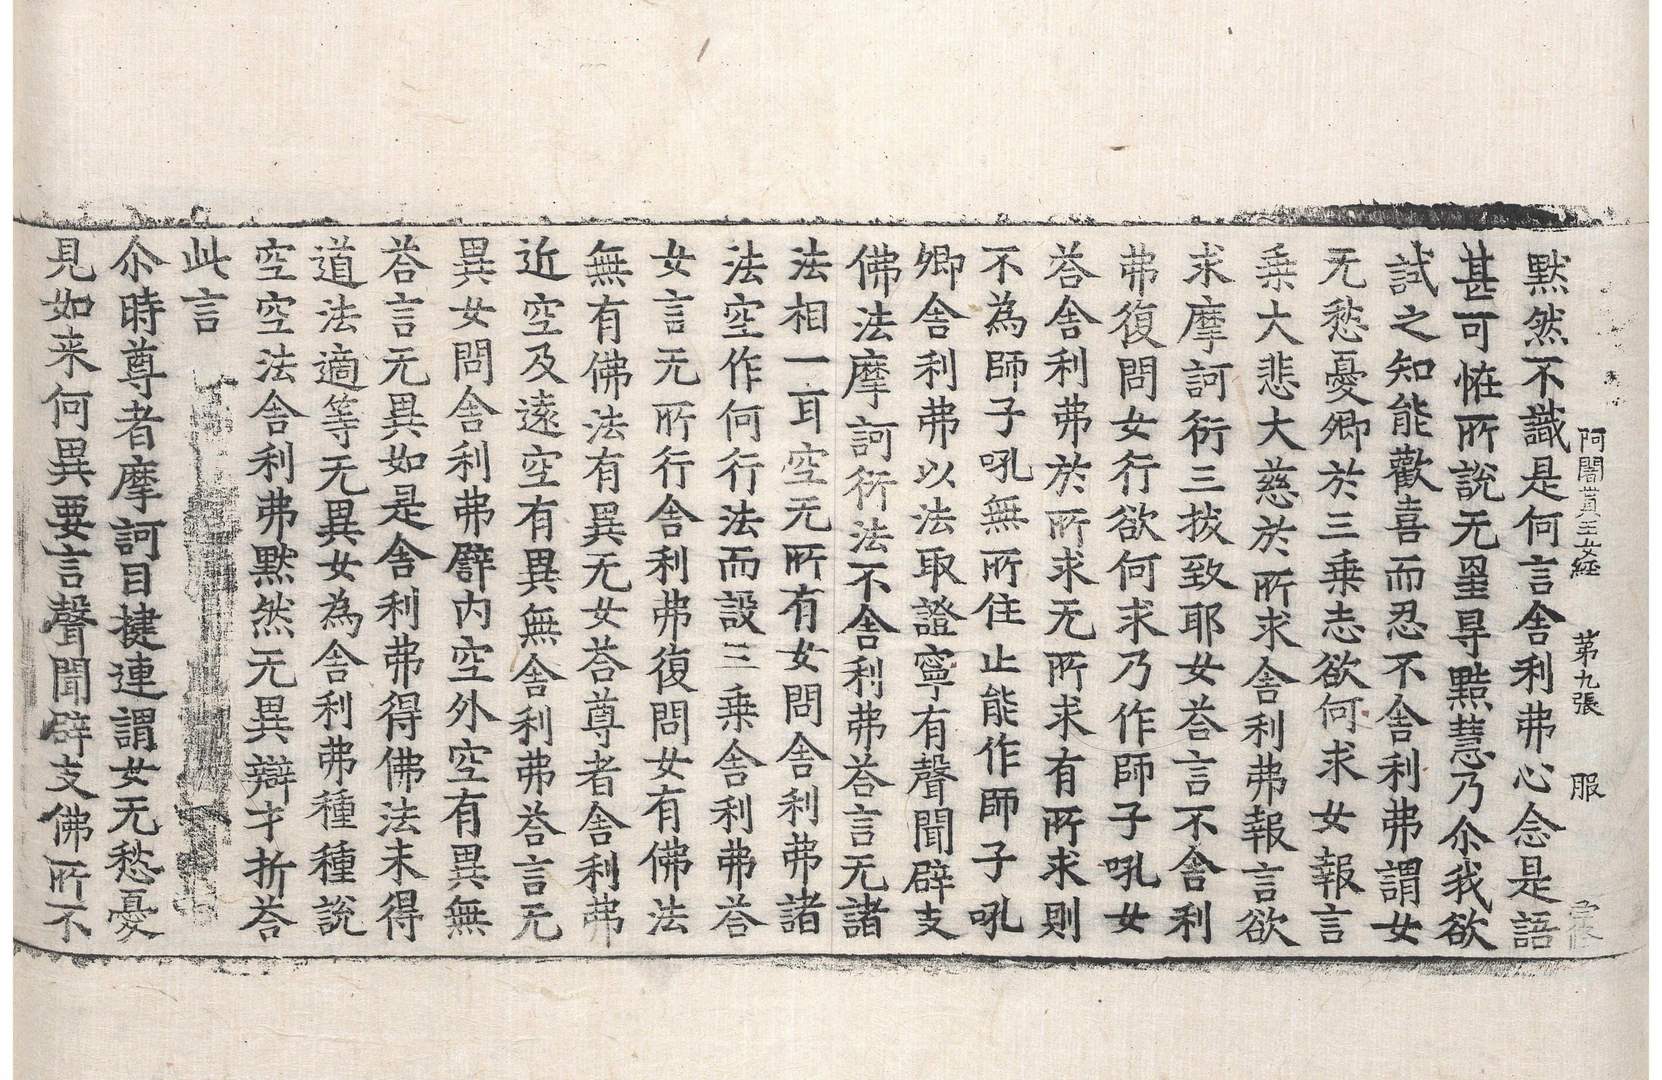 阿闍貰王女経 第九張 服
默然不識是何言舍利弗心念是語
甚可恠所說无罣㝵黠慧乃尒我欲
試之知能歡喜而忍不舍利弗謂女
无愁憂卿於三乗志欲何求女報言
乗大悲大慈於所求舍利弗報言欲
求摩訶衍三拔致耶女荅言不舍利
弗復問女行欲何求乃作師子吼女
荅舍利弗於所求无所求有所求則
不為師子吼無所住止能作師子吼
卿舍利弗以法取證寧有聲聞辟支
佛法摩訶衍法不舍利弗荅言无諸
法相一耳空无所有女問舍利弗諸
法空作何行法而設三乗舍利弗荅
女言无所行舍利弗復問女有佛法
無有佛法有異无女荅尊者舍利弗
近空及遠空有異無舍利弗荅言无
異女問舍利弗譬内空外空有異無
荅言无異如是舍利弗得佛法未得
道法適等无異女為舍利弗種種說
空空法舍利弗默然无異辯才折荅
此言
尒時尊者摩訶目揵連謂女无愁憂
見如来何異要言聲聞辟支佛所不